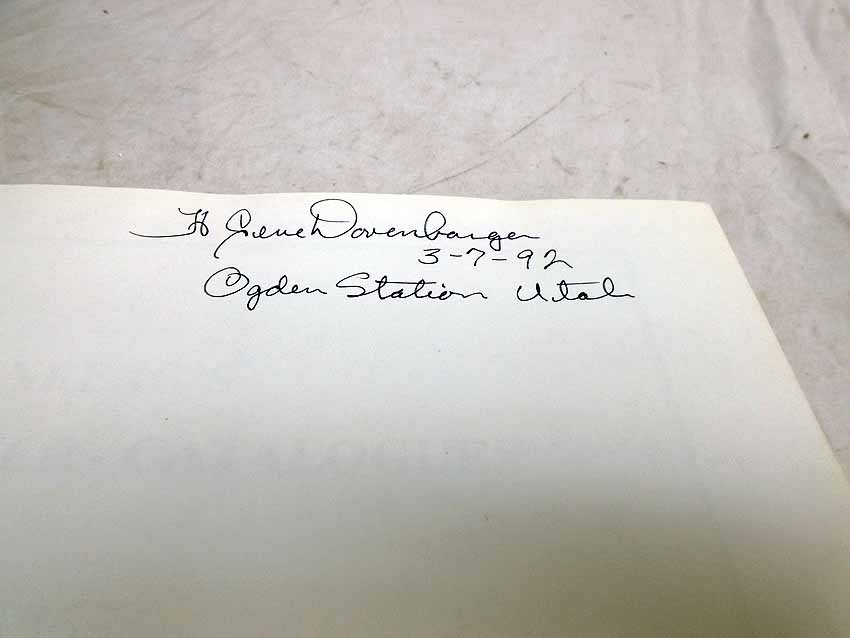 H Gene Dovenbarger
3-7-92
Ogden Station Utah
CATALOGUE